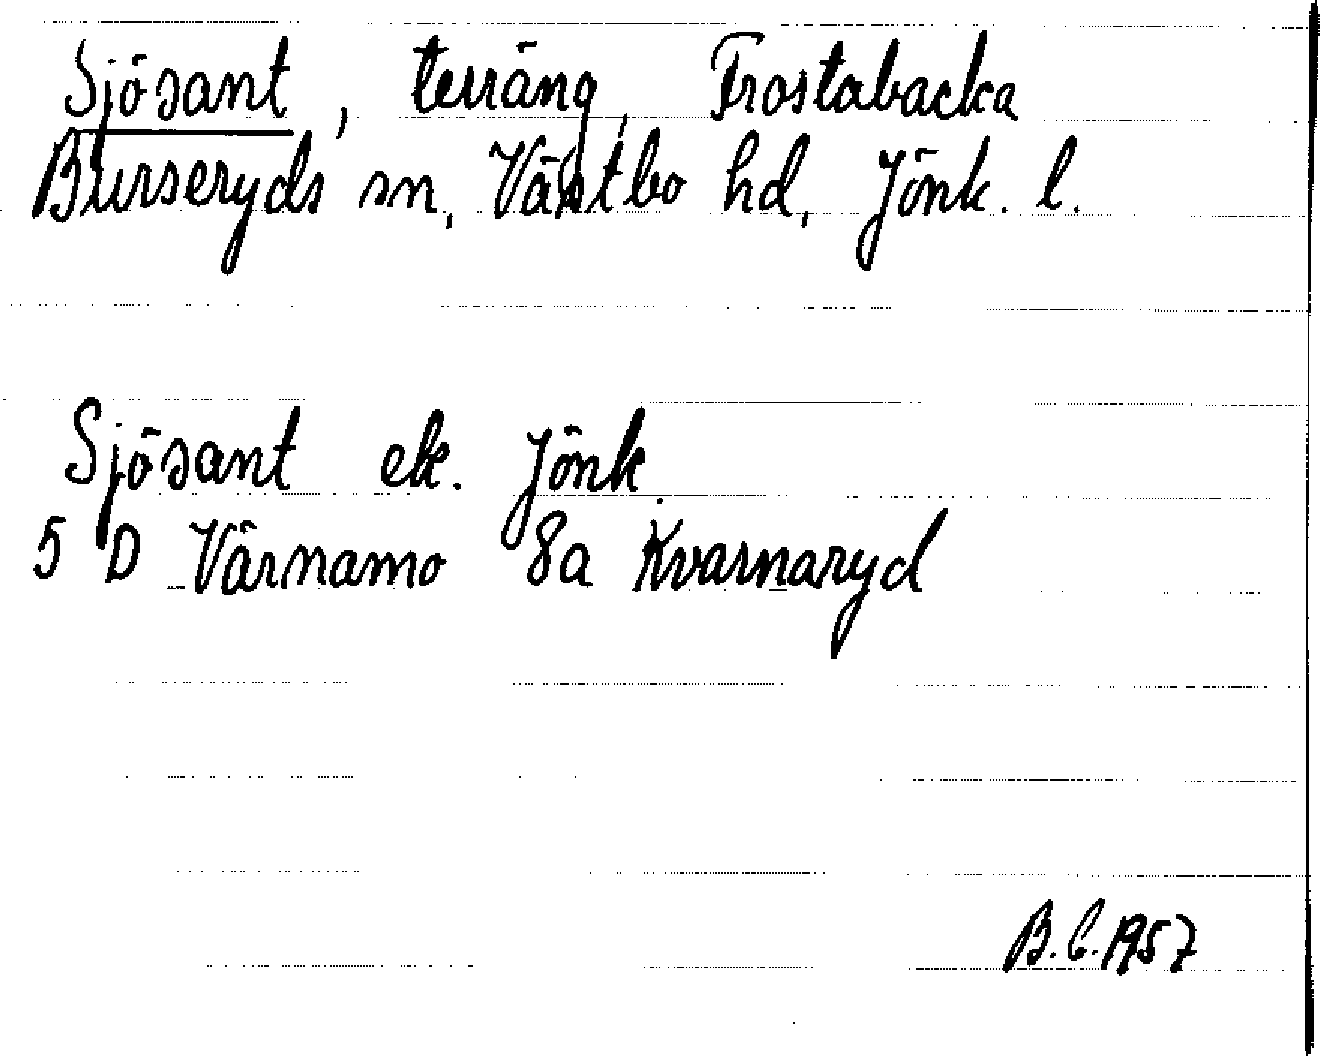 Sjösant, terräng, Frostabacka
Burseryds sn, Västbo hd, Jönk. l.
Sjösant ek. Jönk.
5 D Värnamo 8a Kvarnaryd
B.C.1957